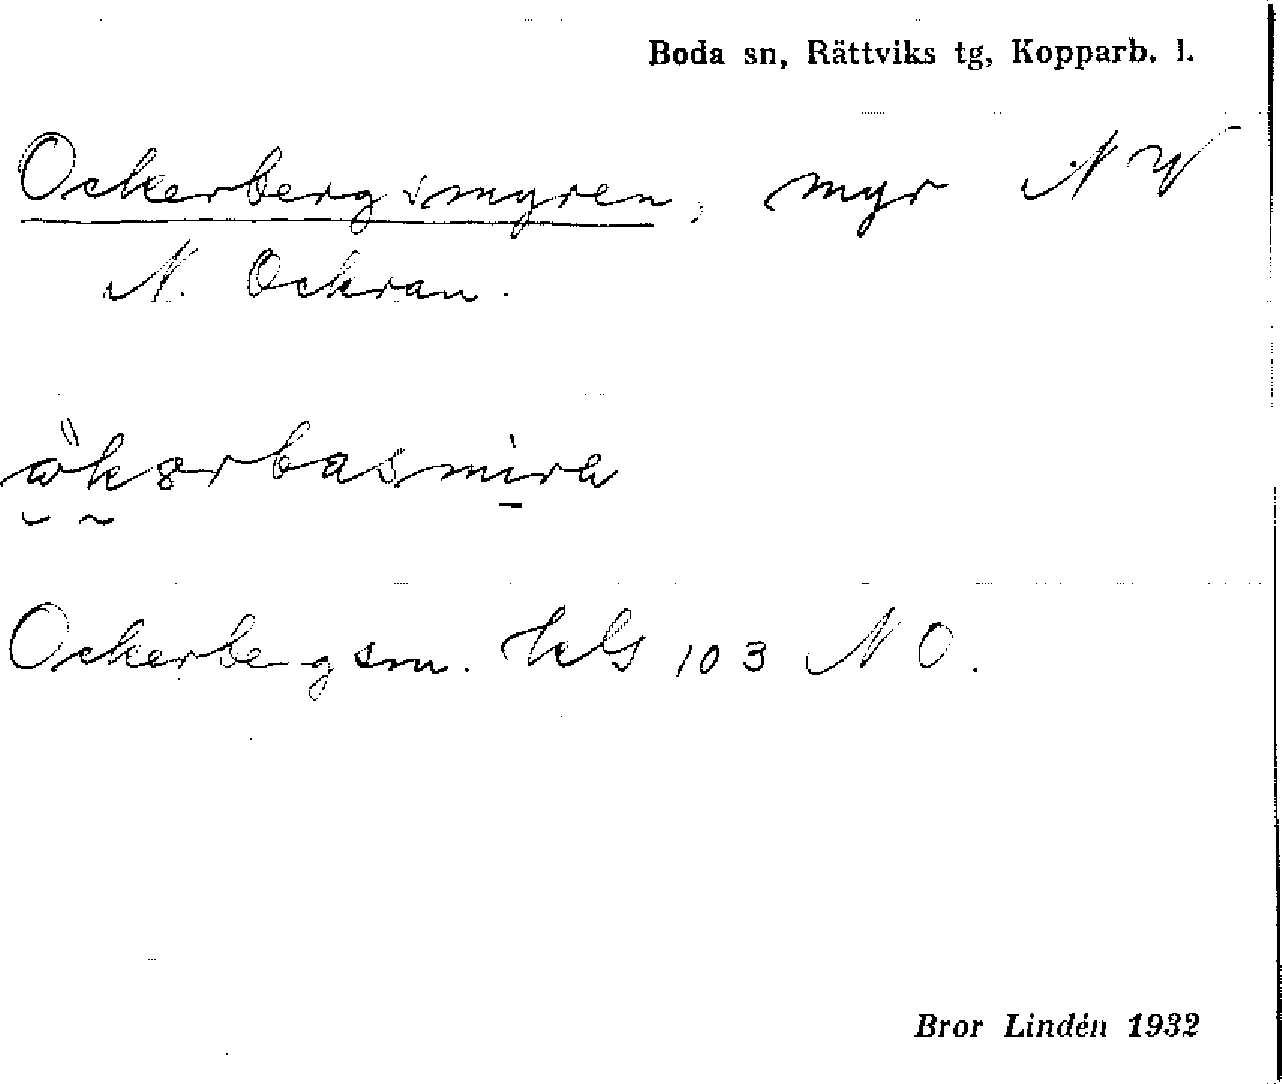 Boda sn, Rättviks tg, Kopparb. l.
Ockerbergsmyren, myr NV
N. Ockran.
Ockerbergsm. kbl 103 NO.
Bror Lindén 1932